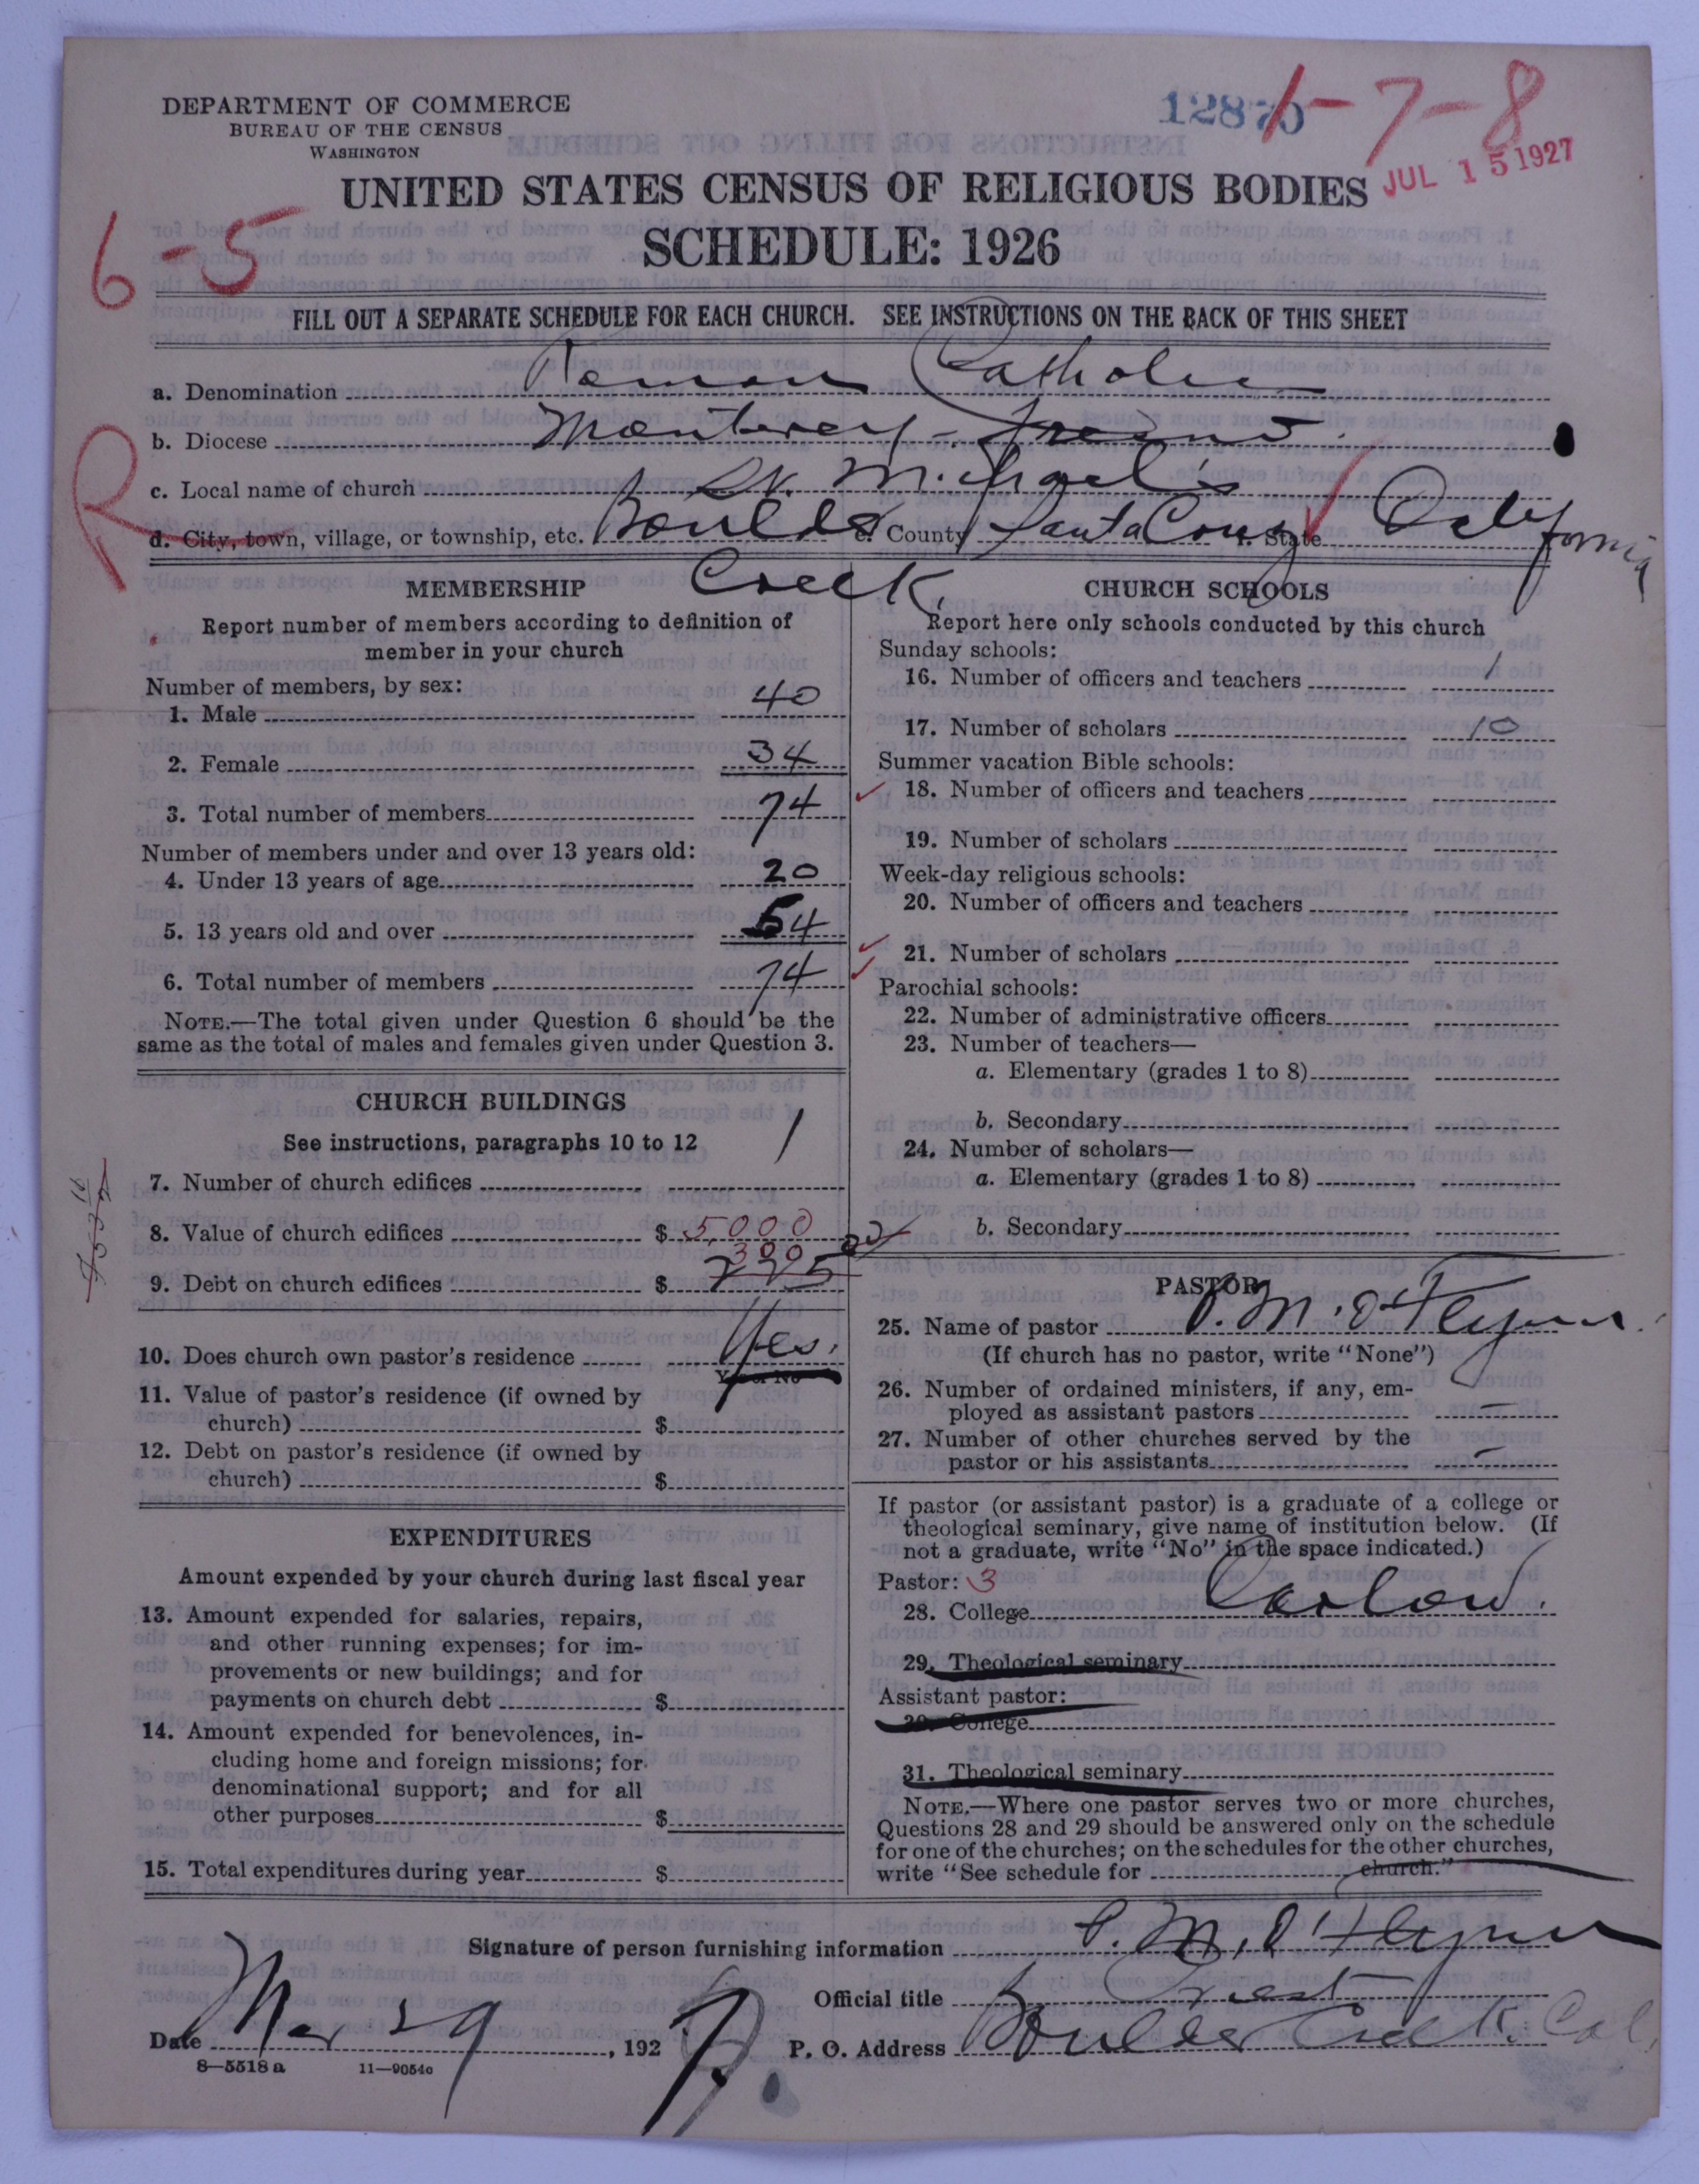 DEPARTMENT OF COMMERCE
BUREAU OF THE CENSUS
WASHINGTON
12870
1-7-8
JUL 15 1927
UNITED STATES CENSUS OF RELIGIOUS BODIES
SCHEDULE: 1926
6-5
FILL OUT A SEPARATE SCHEDULE FOR EACH CHURCH. SEE INSTRUCTIONS ON THE BACK OF THIS SHEET
a. Denomination Roman Catholic
b. Diocese Monterey-Fresno.
c. Local name of church St. Michael's
R
d. City, town, village, or township, etc. Boulder Creek. e. County Santa Cruz f. State California
MEMBERSHIP
Report number of members according to definition of
member in your church
Number of members, by sex:
1. Male 40
2. Female 34
3. Total number of members 74
Number of members under and over 13 years old:
4. Under 13 years of age 20
5. 13 years old and over 54
6. Total number of members 74
NOTE.—The total given under Question 6 should be the
same as the total of males and females given under Question 3.
CHURCH BUILDINGS
See instructions, paragraphs 10 to 12
7. Number of church edifices 1
8. Value of church edifices $ 5,000
300
9. Debt on church edifices $ 225
10. Does church own pastor's residence Yes.
Yes or No
11. Value of pastor's residence (if owned by
church) $
12. Debt on pastor's residence (if owned by
church) $
EXPENDITURES
Amount expended by your church during last fiscal year
13. Amount expended for salaries, repairs,
and other running expenses; for im-
provements or new buildings; and for
payments on church debt $
14. Amount expended for benevolences, in-
cluding home and foreign missions; for
denominational support; and for all
other purposes $
15. Total expenditures during year $
CHURCH SCHOOLS
Report here only schools conducted by this church
Sunday schools:
16. Number of officers and teachers 1
17. Number of scholars 10
Summer vacation Bible schools:
18. Number of officers and teachers
19. Number of scholars
Week-day religious schools:
20. Number of officers and teachers
21. Number of scholars
Parochial schools:
22. Number of administrative officers
23. Number of teachers—
a. Elementary (grades 1 to 8)
b. Secondary
24. Number of scholars—
a. Elementary (grades 1 to 8)
b. Secondary
PASTOR
25. Name of pastor P. M. O'Flynn.
(If church has no pastor, write "None")
26. Number of ordained ministers, if any, em-
ployed as assistant pastors —
27. Number of other churches served by the
pastor or his assistants —
If pastor (or assistant pastor) is a graduate of a college or
theological seminary, give name of institution below. (If
not a graduate, write "No" in the space indicated.)
Pastor: 3
28. College Carlow.
29. Theological seminary
Assistant pastor:
30. College
31. Theological seminary
NOTE.—Where one pastor serves two or more churches,
Questions 28 and 29 should be answered only on the schedule
for one of the churches; on the schedules for the other churches,
write "See schedule for church."
Signature of person furnishing information P. M. O'Flynn
Official title Priest
Date Mar 29, 1927.
P. O. Address Boulder Creek. Cal.
8—5518 a 11—9054c